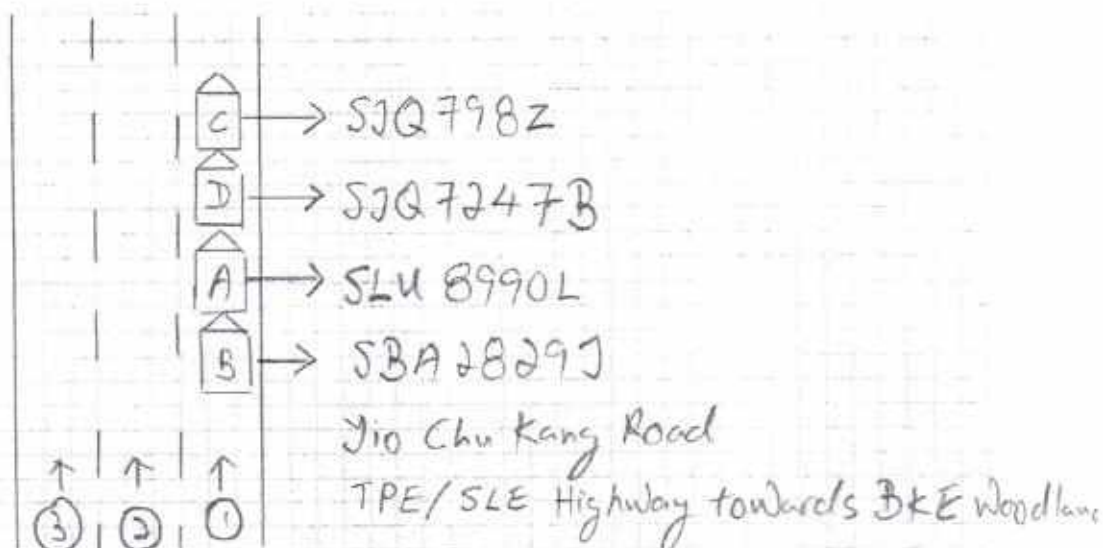 C → SJQ 798Z
D → SJQ 7247B
A → SLU 8990L
B → SBA 2829J
Yio Chu Kang Road
TPE/SLE Highway towards BKE Woodlan
3 2 1